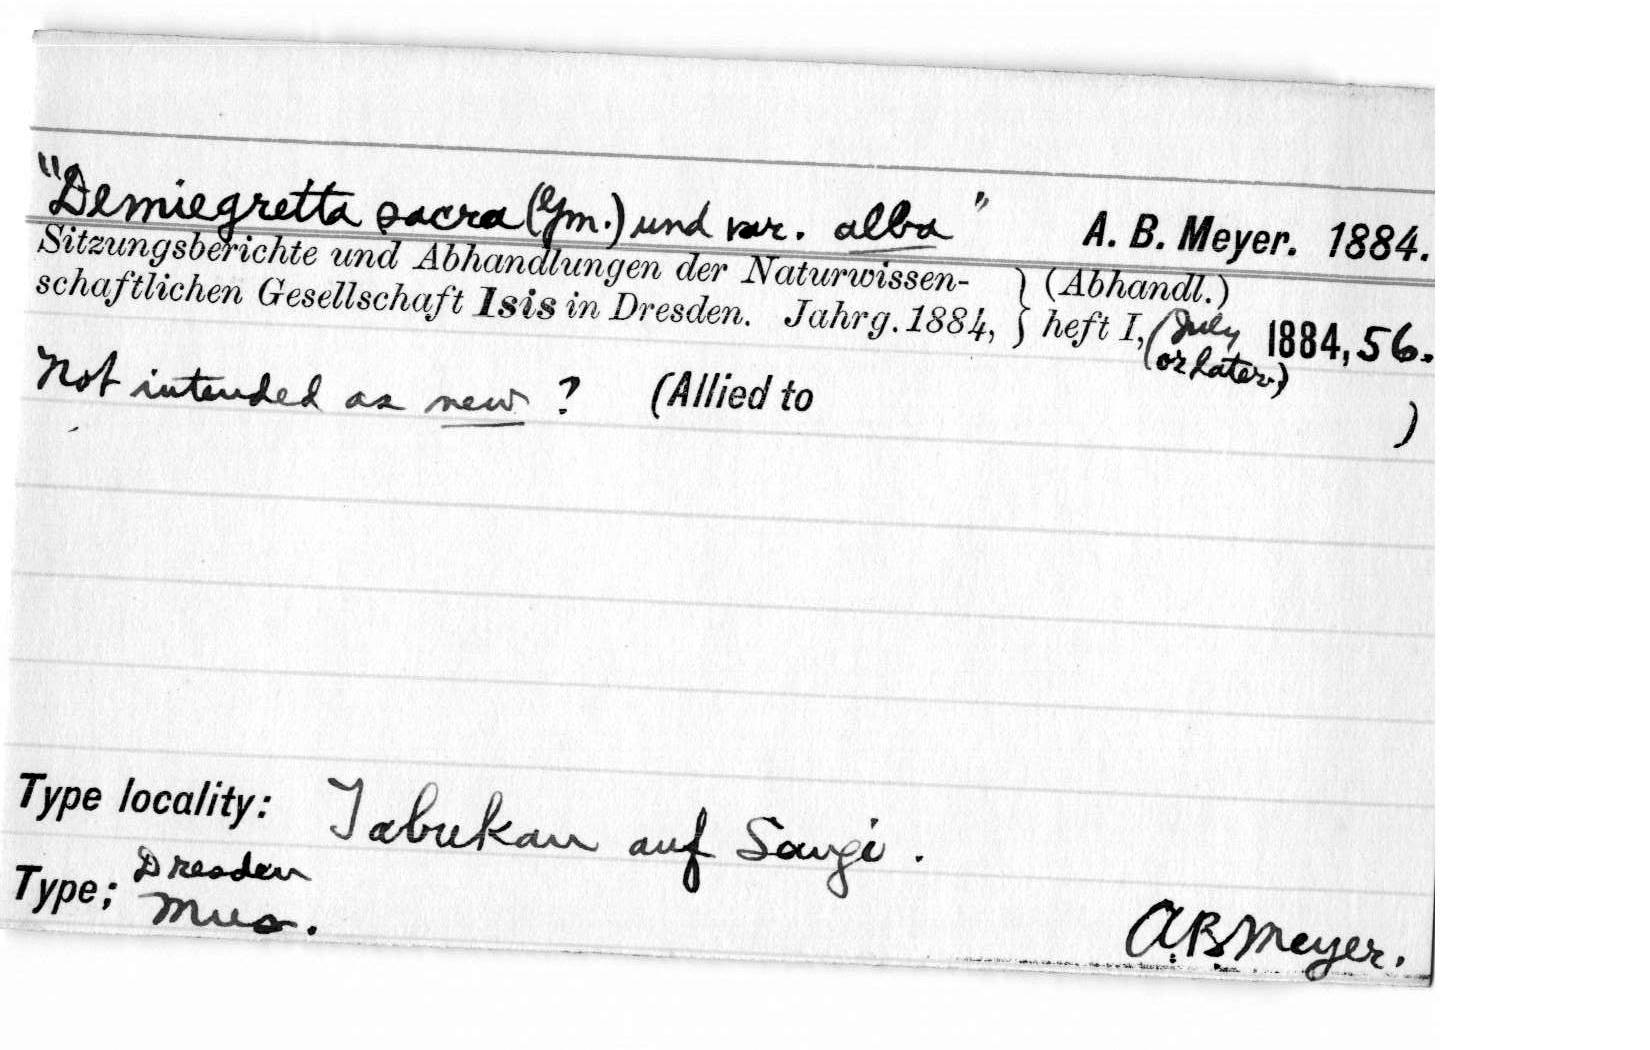 "Demiegretta sacra (Gm.) und var. alba" A. B. Meyer. 1884.
Sitzungsberichte und Abhandlungen der Naturwissen- } (Abhandl.)
schaftlichen Gesellschaft Isis in Dresden. Jahrg. 1884, } heft I, (July 1884, 56.
(or later.)
Not intended as new ? (Allied to )
Type locality: Tabukan auf Sangi.
Type; Dresden
Mus.
A B Meyer.